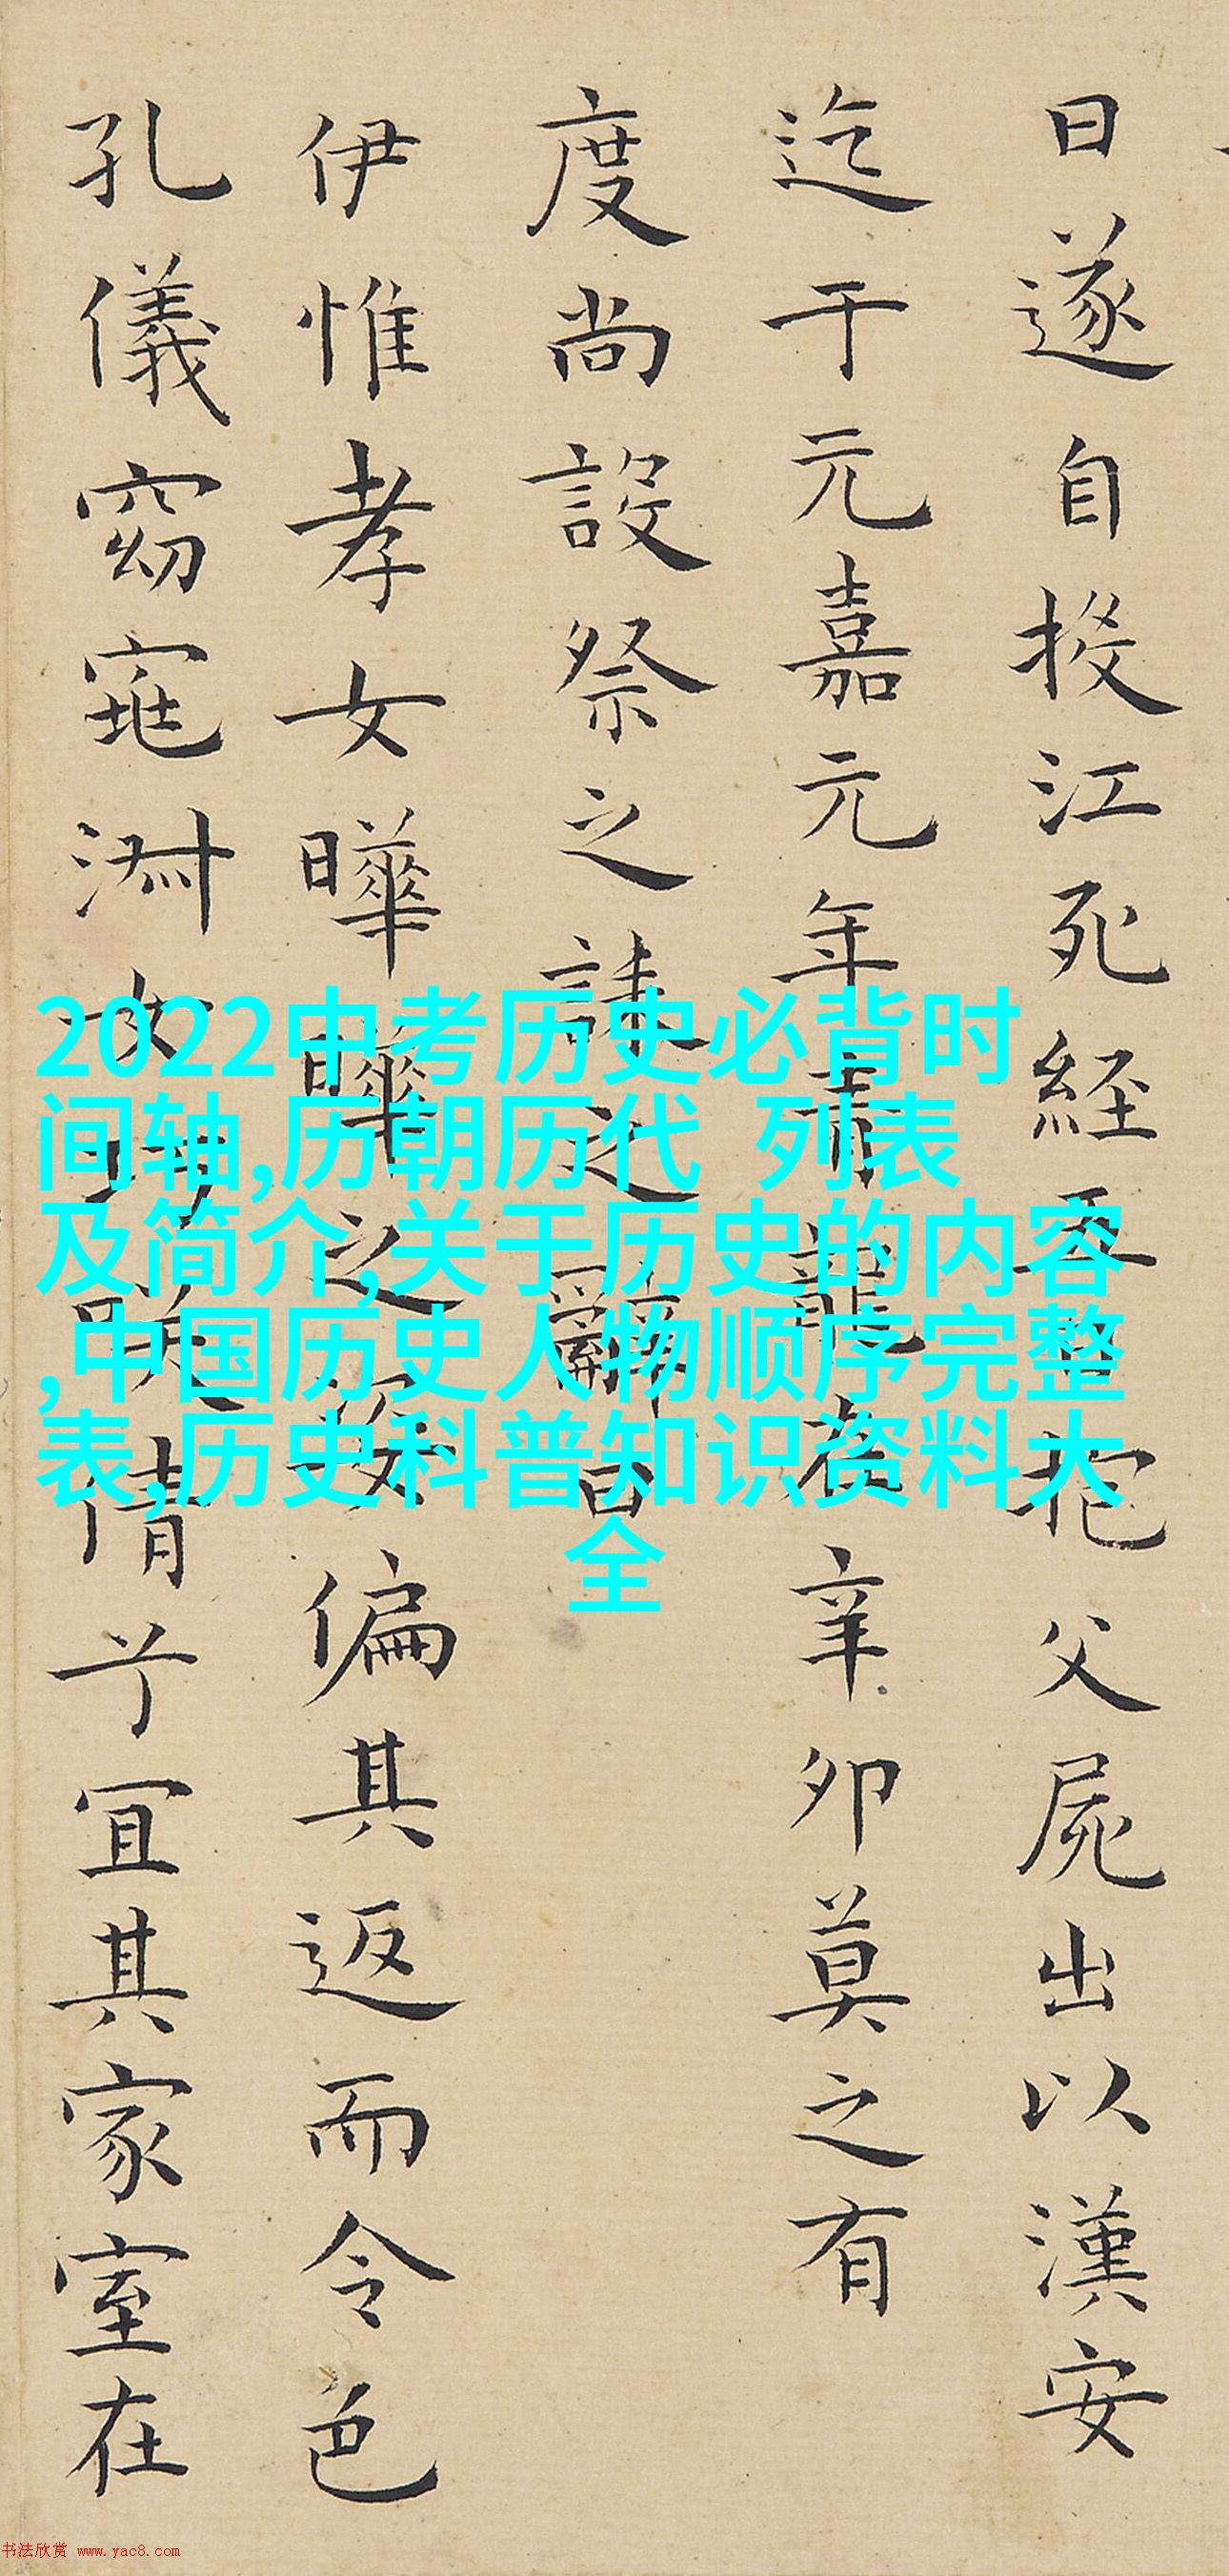 日遂自投江死經五日抱父屍出以漢安
迄于元嘉元年青龍在辛卯莫之有
度尚設祭之誄之辭曰
伊惟孝女曄曄之姿偏其返而令色
孔儀窈窕淑女巧咲倩兮宜其家室在
2022中考历史必背时
间轴,历朝历代 列表
及简介,关于历史的内容
,中国历史人物顺序完整
表,历史科普知识资料大
全
书法欣赏 www.yac8.com